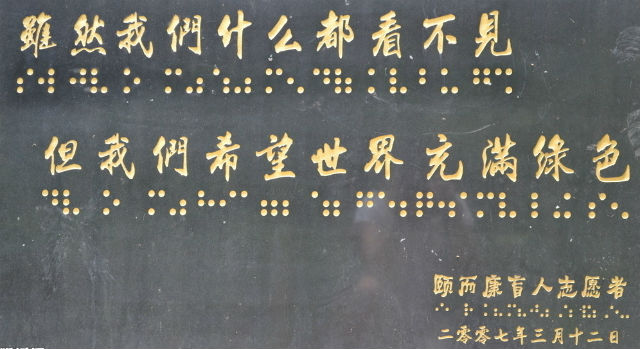 雖然我們什么都看不見
但我們希望世界充滿綠色
颐而康盲人志愿者
二零零七年三月十二日